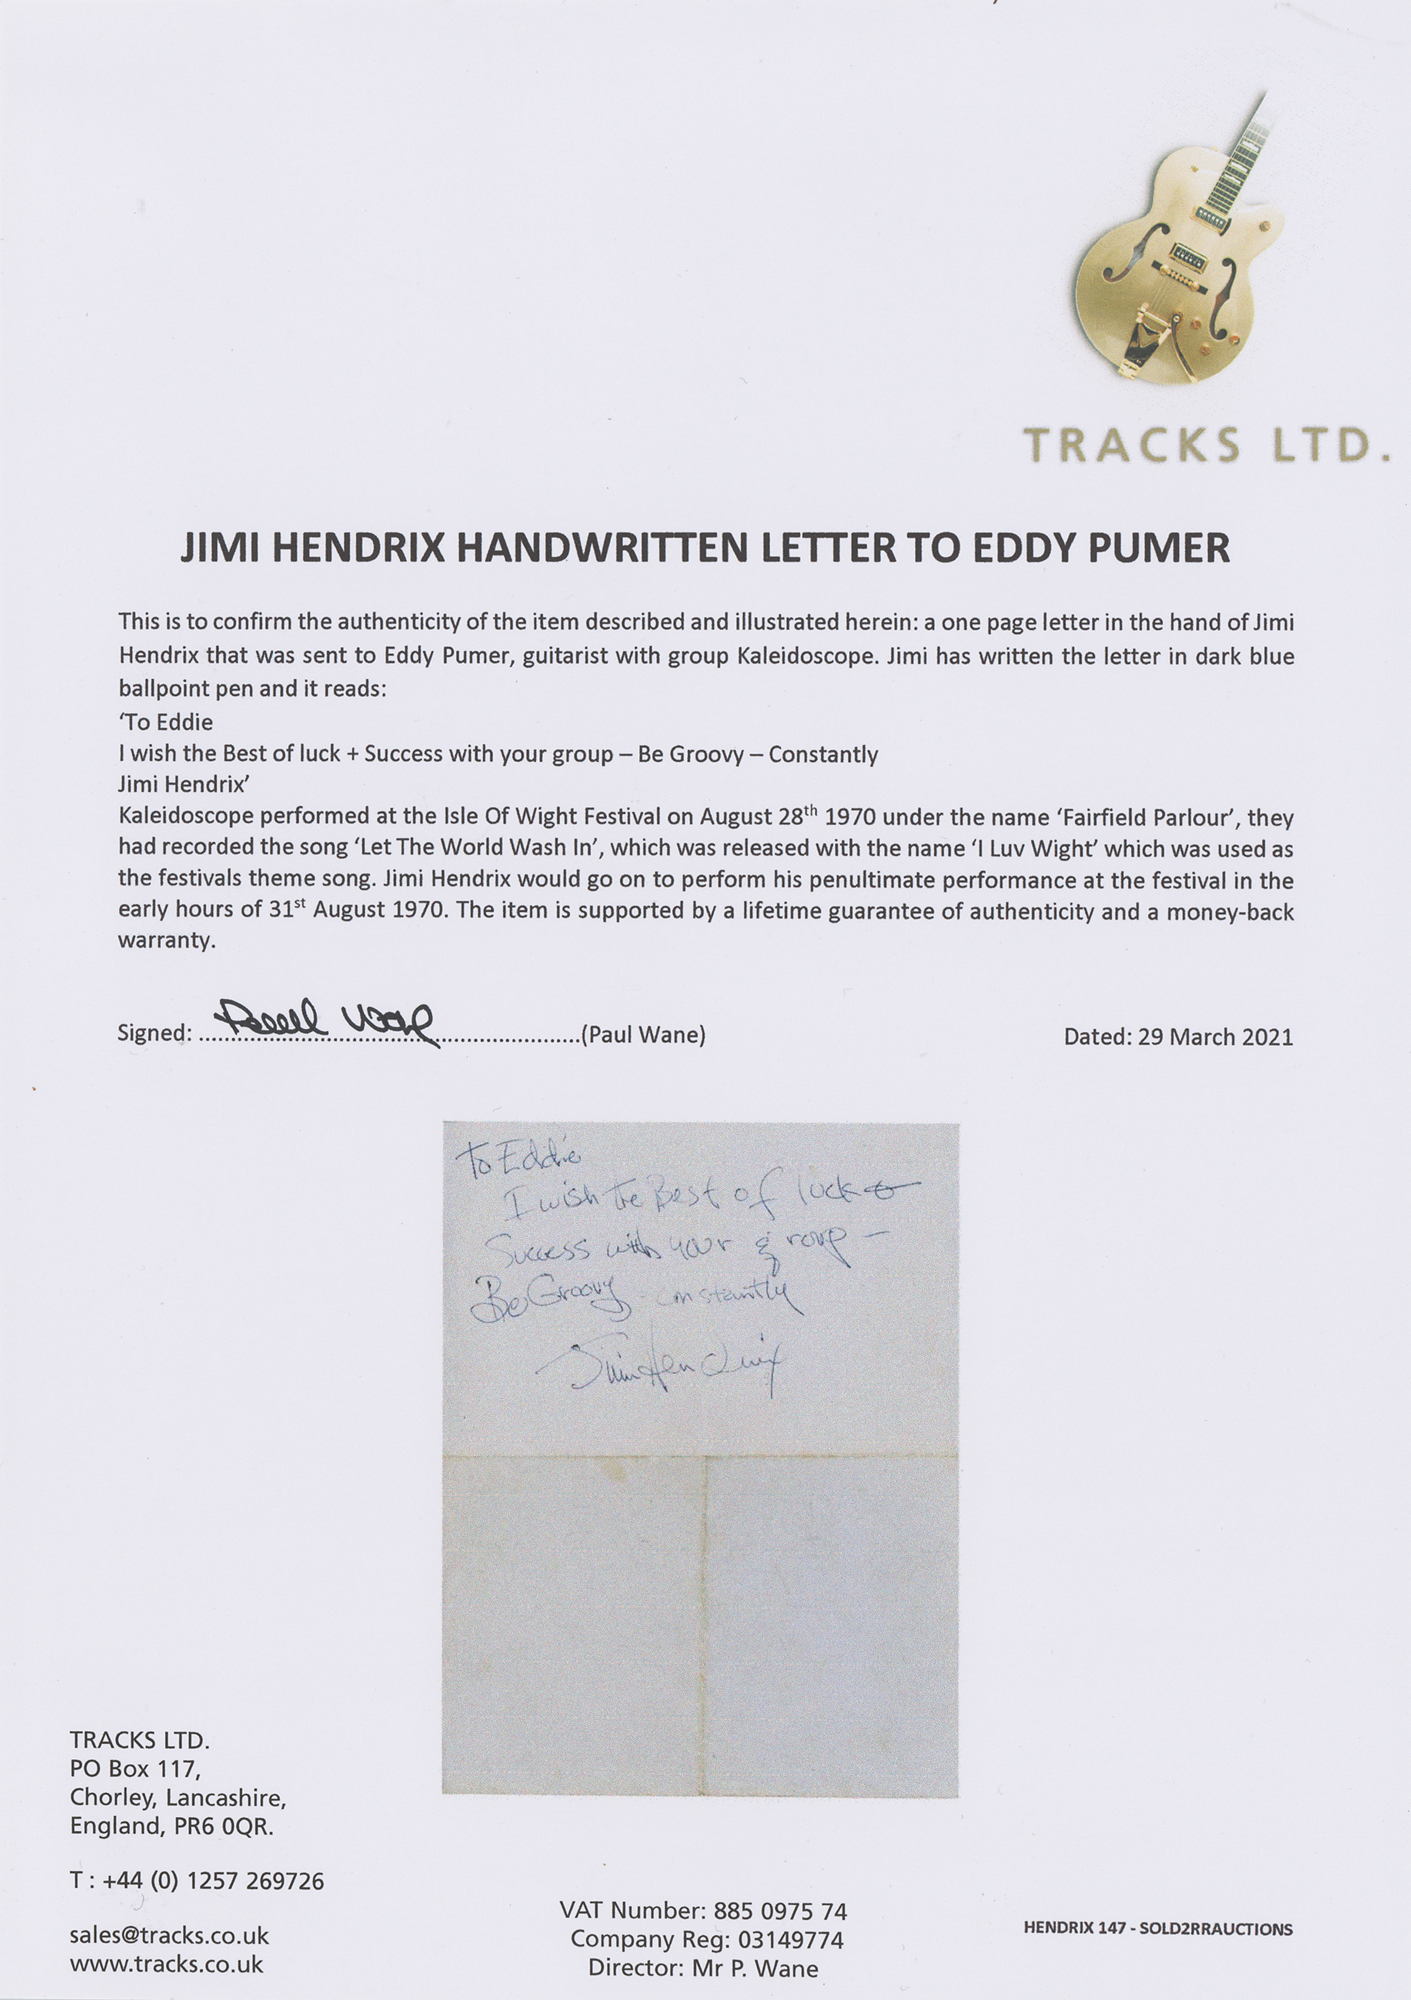 TRACKS LTD.
JIMI HENDRIX HANDWRITTEN LETTER TO EDDY PUMER
This is to confirm the authenticity of the item described and illustrated herein: a one page letter in the hand of Jimi
Hendrix that was sent to Eddy Pumer, guitarist with group Kaleidoscope. Jimi has written the letter in dark blue
ballpoint pen and it reads:
‘To Eddie
I wish the Best of luck + Success with your group – Be Groovy – Constantly
Jimi Hendrix’
Kaleidoscope performed at the Isle Of Wight Festival on August 28th 1970 under the name ‘Fairfield Parlour’, they
had recorded the song ‘Let The World Wash In’, which was released with the name ‘I Luv Wight’ which was used as
the festivals theme song. Jimi Hendrix would go on to perform his penultimate performance at the festival in the
early hours of 31st August 1970. The item is supported by a lifetime guarantee of authenticity and a money-back
warranty.
Signed: Paul Wane (Paul Wane) Dated: 29 March 2021
To Eddie
I wish the Best of luck +
Success with your group –
Be Groovy - constantly
Jimi Hendrix
TRACKS LTD.
PO Box 117,
Chorley, Lancashire,
England, PR6 0QR.
T : +44 (0) 1257 269726
sales@tracks.co.uk
www.tracks.co.uk
VAT Number: 885 0975 74
Company Reg: 03149774
Director: Mr P. Wane
HENDRIX 147 - SOLD2RRAUCTIONS